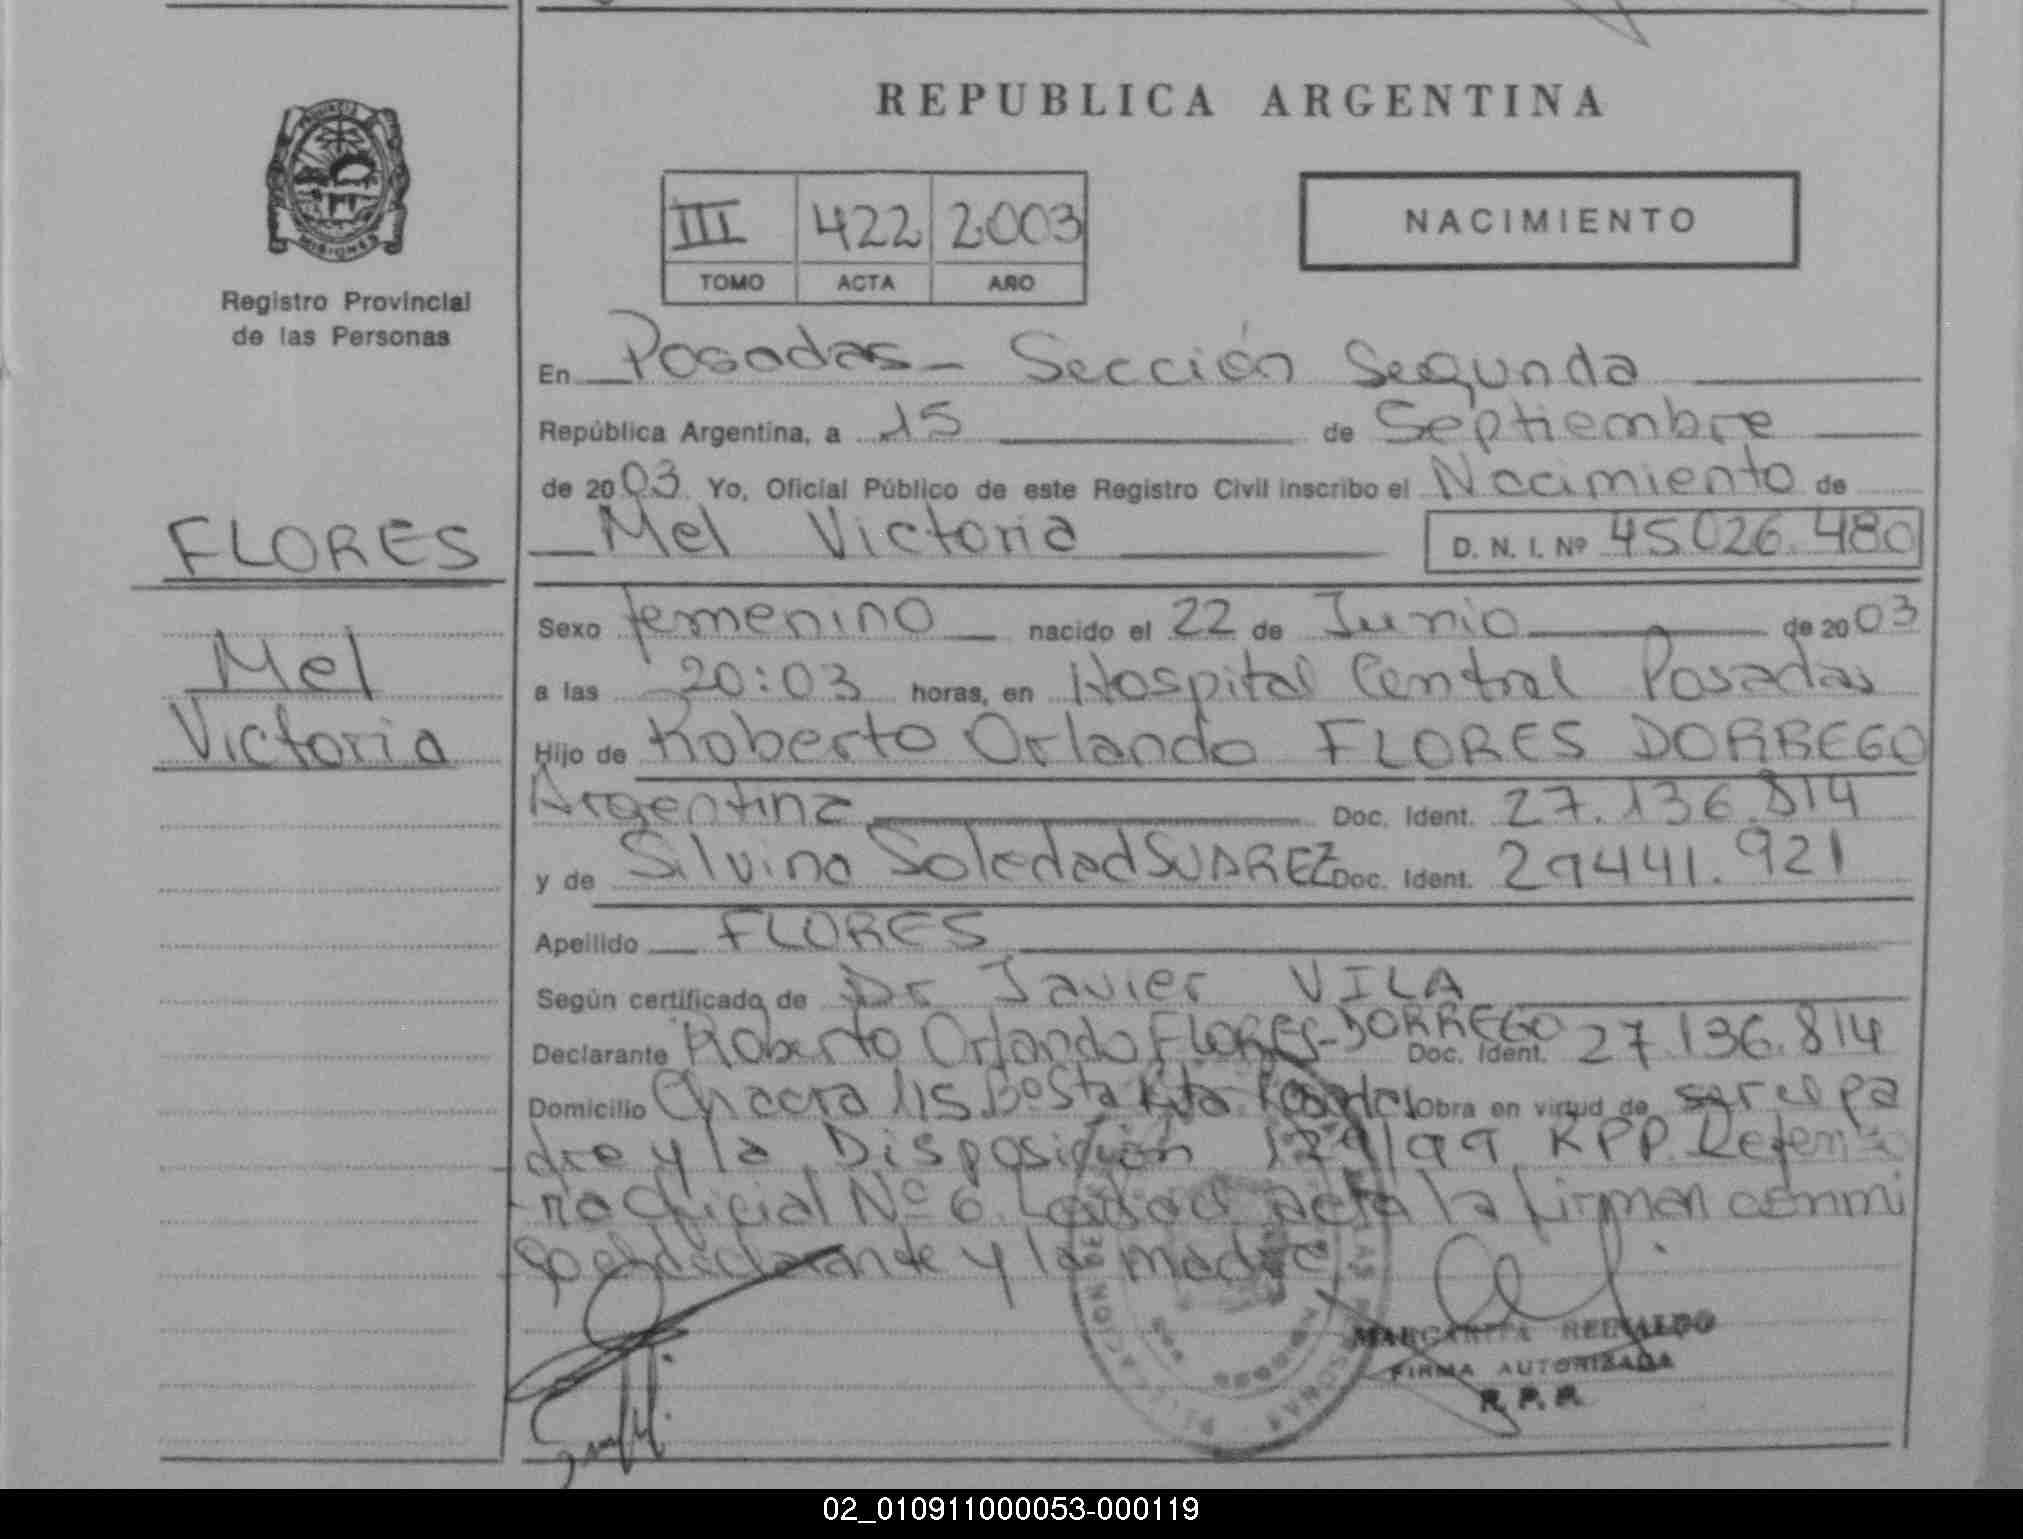 REPUBLICA ARGENTINA
PROVINCIA
MISIONES
Registro Provincial
de las Personas
III 422 2003
TOMO ACTA AÑO
NACIMIENTO
En Posadas - Sección Segunda
República Argentina, a 15 de Septiembre
de 2003. Yo, Oficial Público de este Registro Civil inscribo el Nacimiento de
Mel Victoria D. N. I. Nº 45.026.480
FLORES
Mel
Victoria
Sexo femenino nacido el 22 de Junio de 2003
a las 20:03 horas, en Hospital Central Posadas
Hijo de Roberto Orlando FLORES DORREGO
Argentina Doc. Ident. 27.136.814
y de Silvina Soledad SUAREZ Doc. Ident. 29441.921
Apellido FLORES
Según certificado de Dr Javier VILA
Declarante Roberto Orlando FLORES-DORREGO Doc. Ident. 27.136.814
Domicilio Chacra 115 Bº Sta Rita Posadas Obra en virtud de ser el pa
dre y la Disposición 129/99 RPP.
Oficial Nº 6. acta la firman conmi
go el declarante y la madre
MARGARITA
FIRMA AUTORIZADA
R.P.P.
02_010911000053-000119